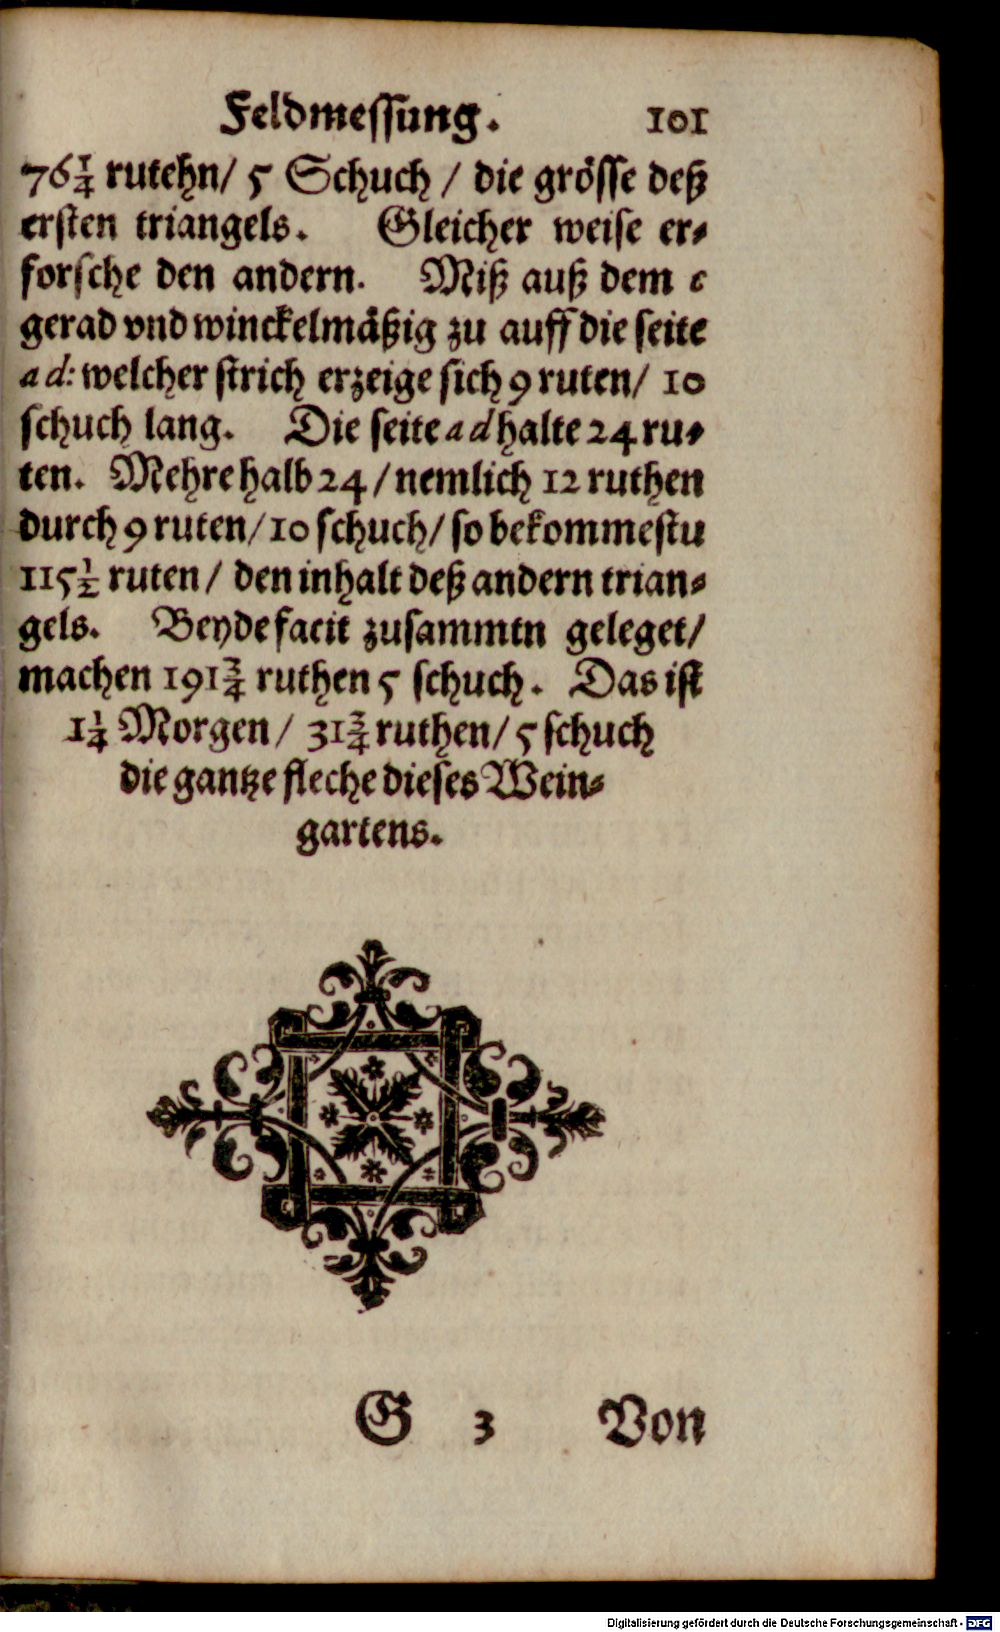 Feldmessung. 101
76¼ rutehn/ 5 Schuch / die grösse deß
ersten triangels. Gleicher weise er⸗
forsche den andern. Miß auß dem c
gerad vnd winckelmäßig zu auff die seite
a d: welcher strich erzeige sich 9 ruten/ 10
schuch lang. Die seite a d halte 24 ru⸗
ten. Mehre halb 24 / nemlich 12 ruthen
durch 9 ruten/ 10 schuch/ so bekommestu
115½ ruten/ den inhalt deß andern trian⸗
gels. Beyde facit zusammtn geleget/
machen 191¾ ruthen 5 schuch. Das ist
1¼ Morgen/ 31¾ ruthen/ 5 schuch
die gantze fleche dieses Wein⸗
gartens.
G 3 Von
Digitalisierung gefördert durch die Deutsche Forschungsgemeinschaft - DFG